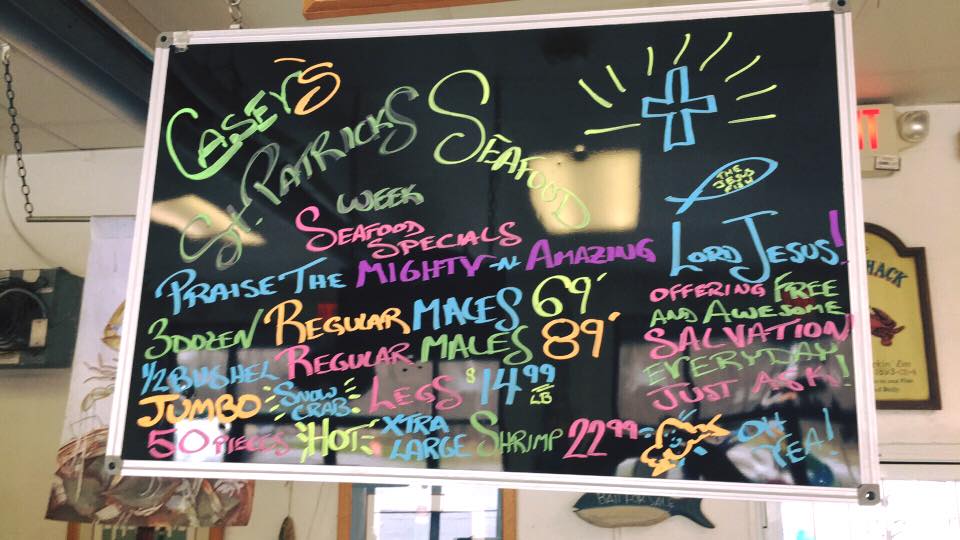 CASEY'S
ST. PATRICKS SEAFOOD
WEEK
SEAFOOD SPECIALS
THE JESUS FISH
PRAISE THE MIGHTY -N- AMAZING LORD JESUS!
3 DOZEN REGULAR MALES 69'
1/2 BUSHEL REGULAR MALES 89'
JUMBO SNOW CRAB LEGS $14.99 LB
50 PIECES HOT XTRA LARGE SHRIMP 22.99
OFFERING FREE
AND AWESOME
SALVATION
EVERYDAY
JUST ASK!
OH YEA!
HACK
BAIT FOR SALE